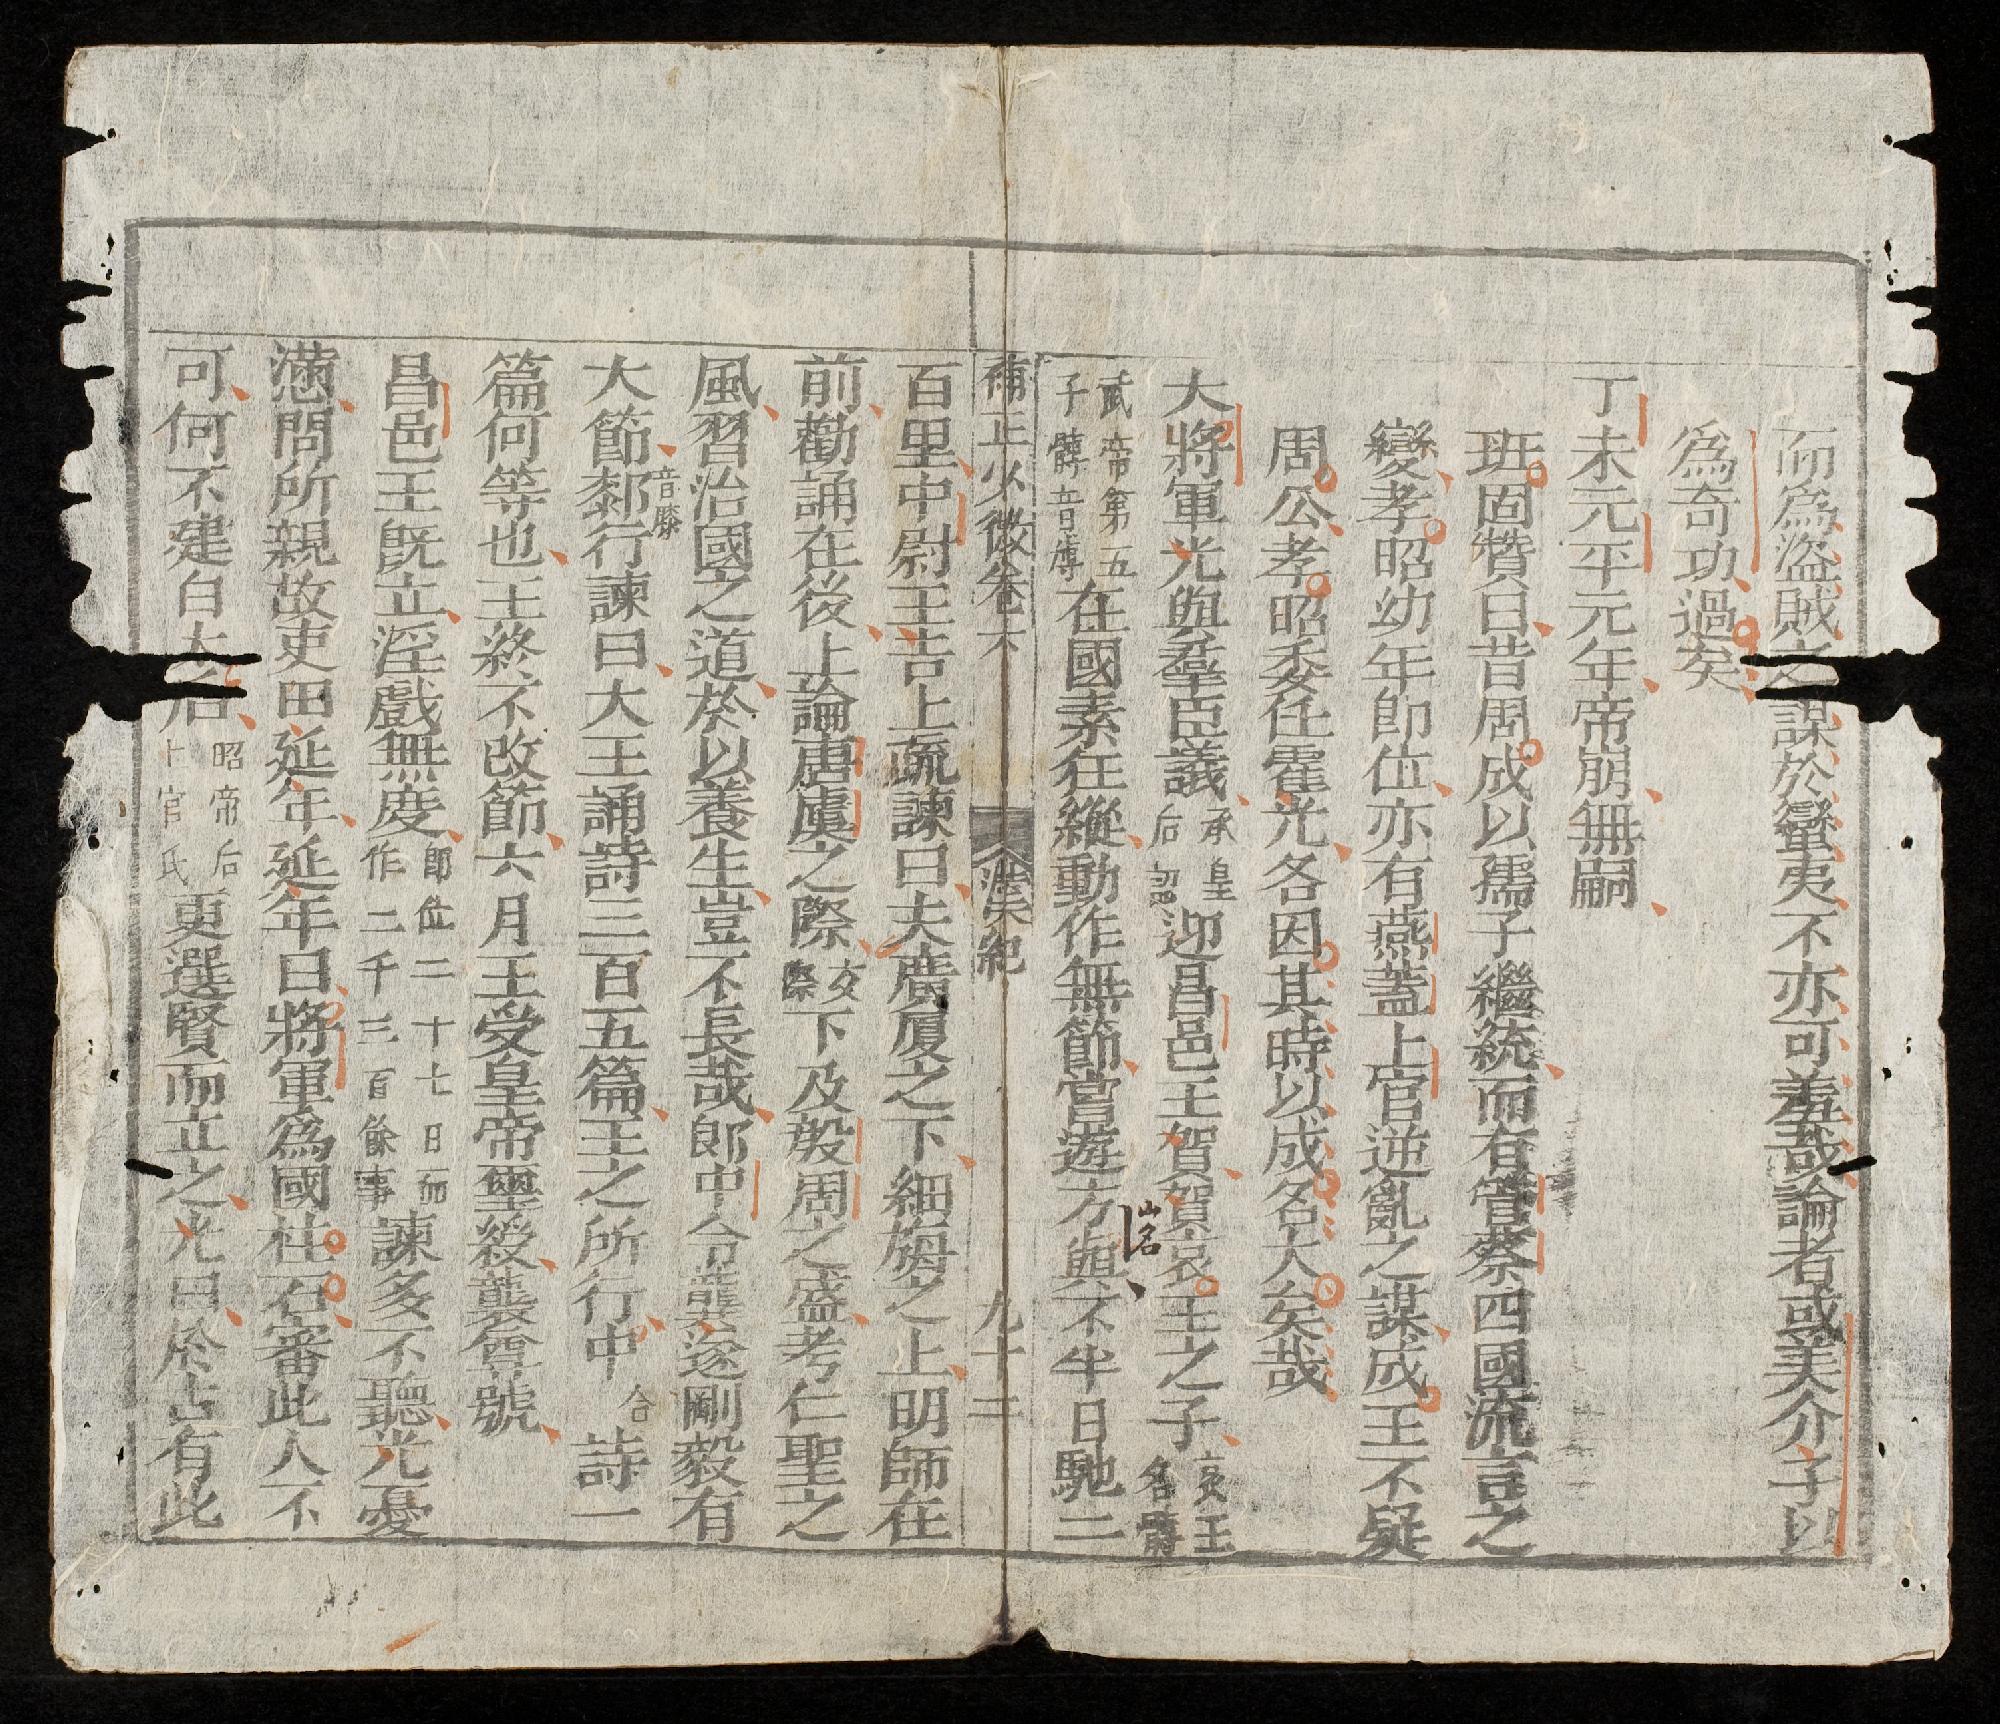 而爲盜賊之謀於蠻夷不亦可羞哉論者或美介子以
爲奇功過矣
丁未元平元年帝崩無嗣
班固贊曰昔周成以孺子繼統而有管蔡四國流言之
變孝昭幼年卽位亦有燕蓋上官逆亂之謀成王不疑
周公孝昭委任霍光各因其時以成名大矣哉
大將軍光與羣臣議承皇后詔迎昌邑王賀賀哀王之子哀王名髆
武帝第五子髆音博在國素狂縱動作無節嘗遊方與不半日馳二
山名
補正少微卷六 漢紀 九十二
百里中尉王吉上疏諫曰夫廣厦之下細旃之上明師在
前勸誦在後上論唐虞之際交際下及殷周之盛考仁聖之
風習治國之道於以養生豈不長哉郞中令龔遂剛毅有
大節郪音膝行諫曰大王誦詩三百五篇王之所行中合詩一
篇何等也王終不改節六月王受皇帝璽綬襲尊號
昌邑王旣立淫戲無度卽位二十七日而作二千三百餘事諫多不聽光憂
懣問所親故吏田延年延年曰將軍爲國柱石審此人不
可何不建白太后昭帝后上官氏更選賢而立之光曰於古有此